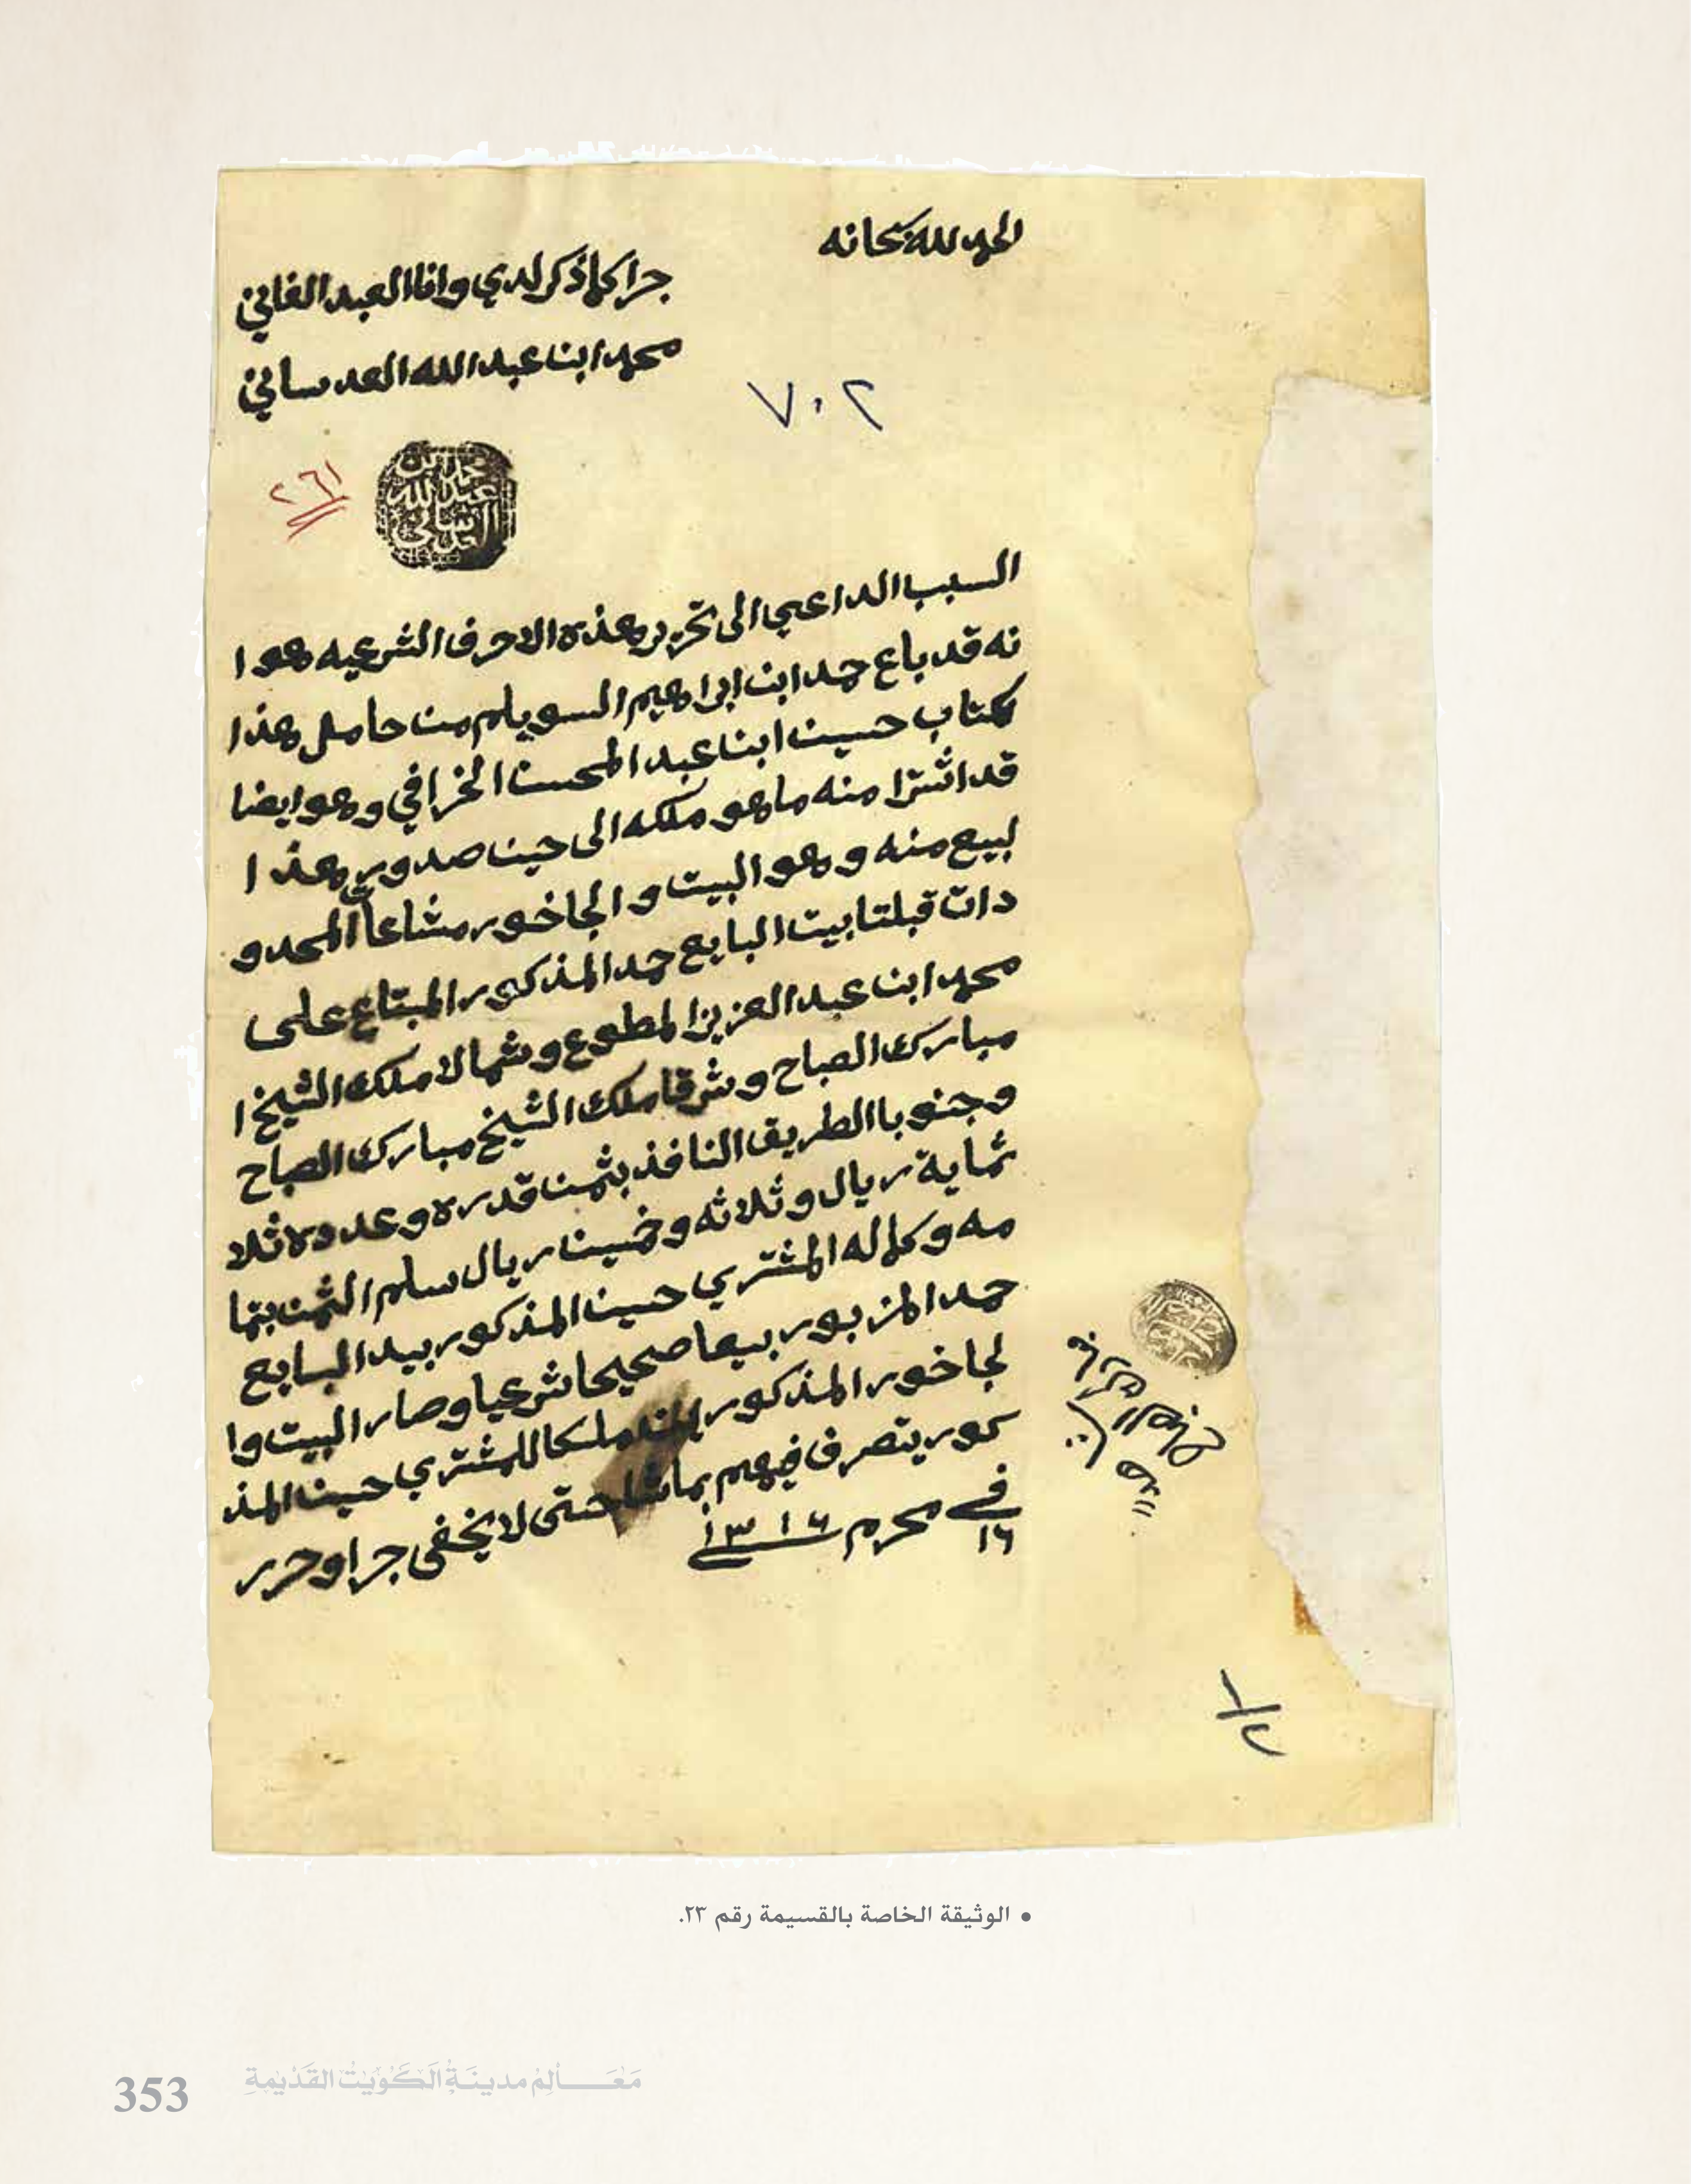 الحمد لله سبحانه
جرا كما ذكر لدي وانا العبد الفاني
محمد ابن عبد الله العدساني
٧٠٢
٢٦١
محمد ابن
عبد الله
العدساني
السبب الداعي الى تحرير هذه الاحرف الشرعيه هو ا
نه قد باع حمد ابن ابراهيم السويلم من حامل هذا
لكتاب حسين ابن عبد المحسن الخرافي وهو ايضا
قد اشترا منه ما هو ملكه الى حين صدور هذا ا
لبيع منه وهو البيت والجاخور مشاعا المحدو
دات قبلتا بيت البايع حمد المذكور المبتاع على
محمد ابن عبد العزيز المطوع وشمالا ملك الشيخ ا
مبارك الصباح وشرقا ملك الشيخ مبارك الصباح
وجنوبا الطريق النافذ بثمن قدره وعدده ثلا
ثماية ريال وثلاثه وخمسين ريال سلم الثمن بتما
مه وكماله المشتري حسين المذكور بيد البايع
حمد المزبور بيعا صحيحا شرعيا وصار البيت وا
لجاخور المذكور ملكا للمشتري حسين المذ
كور يتصرف فيهم بما شا حتى لا يخفى جرا وحرر
في ١٦ محرم سنة ١٣١٦
١/٢
• الوثيقة الخاصة بالقسيمة رقم ٢٣.
مَعَالِمْ مدينَةِ الكُوَيْت القَدْيمةِ
353